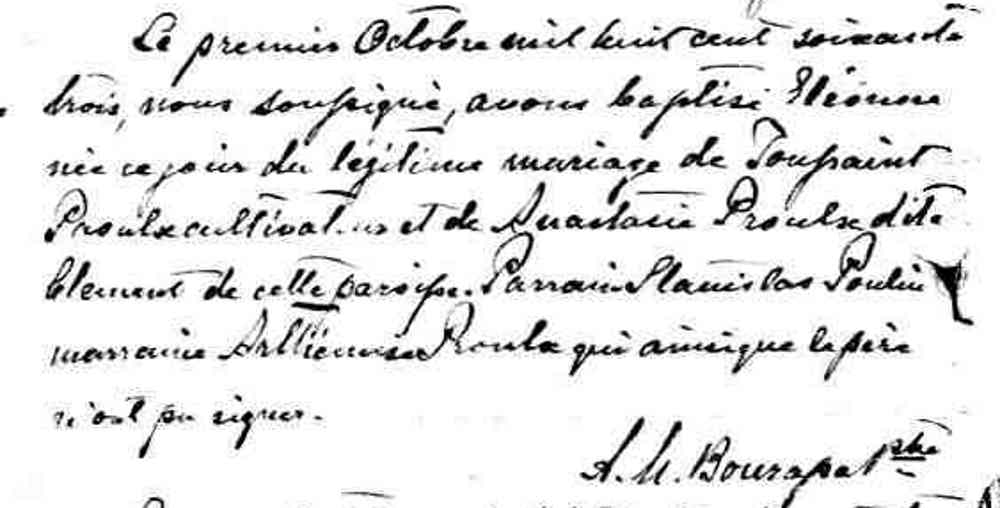 Le premier Octobre mil huit cent soixante
trois, nous soussigné, avons baptisé Eléonore
née ce jour du légitime mariage de Toussaint
Proulx cultivateur et de Anastasie Proulx dite
Clement de cette paroisse. Parrain Stanislas Poulin
marraine Proulx qui ainsi que le père
n'ont pu signer.
A. M. Bourassa Ptre